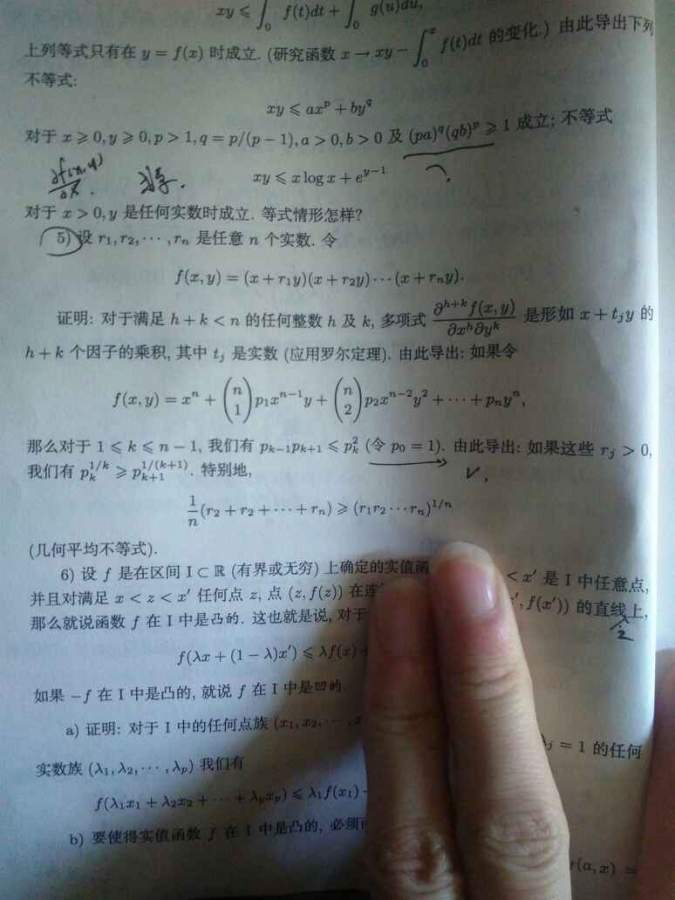 xy ⩽ ∫₀ f(t)dt + ∫₀ g(u)du,
上列等式只有在 y = f(x) 时成立. (研究函数 x → xy − ∫₀ˣ f(t)dt 的变化.) 由此导出下列
不等式:
xy ⩽ axᵖ + by^q
对于 x ⩾ 0, y ⩾ 0, p > 1, q = p/(p − 1), a > 0, b > 0 及 (pa)^q(qb)^p ⩾ 1 成立; 不等式
xy ⩽ x log x + e^{y−1}
对于 x > 0, y 是任何实数时成立. 等式情形怎样?
5) 设 r₁, r₂, ⋯, rₙ 是任意 n 个实数. 令
f(x, y) = (x + r₁y)(x + r₂y)⋯(x + rₙy).
证明: 对于满足 h + k < n 的任何整数 h 及 k, 多项式 ∂^{h+k}f(x, y)/∂x^h∂y^k 是形如 x + tⱼy 的
h + k 个因子的乘积, 其中 tⱼ 是实数 (应用罗尔定理). 由此导出: 如果令
f(x, y) = xⁿ + (n 1)p₁x^{n−1}y + (n 2)p₂x^{n−2}y² + ⋯ + pₙyⁿ,
那么对于 1 ⩽ k ⩽ n − 1, 我们有 p_{k−1}p_{k+1} ⩽ p_k² (令 p₀ = 1). 由此导出: 如果这些 rⱼ > 0,
我们有 p_k^{1/k} ⩾ p_{k+1}^{1/(k+1)}. 特别地,
1/n (r₂ + r₂ + ⋯ + rₙ) ⩾ (r₁r₂⋯rₙ)^{1/n}
(几何平均不等式).
6) 设 f 是在区间 I ⊂ ℝ (有界或无穷) 上确定的实值函 < x′ 是 I 中任意点,
并且对满足 x < z < x′ 任何点 z, 点 (z, f(z)) 在连 ′, f(x′)) 的直线上,
那么就说函数 f 在 I 中是凸的. 这也就是说, 对于
f(λx + (1 − λ)x′) ⩽ λf(x)
如果 −f 在 I 中是凸的, 就说 f 在 I 中是凹的
a) 证明: 对于 I 中的任何点族 (x₁, x₂, ⋯, x λⱼ = 1 的任何
实数族 (λ₁, λ₂, ⋯, λₚ) 我们有
f(λ₁x₁ + λ₂x₂ + ⋯ + λₚxₚ) ⩽ λ₁f(x₁)
b) 要使得实值函数 f 在 I 中是凸的, 必须 r(a, x) =